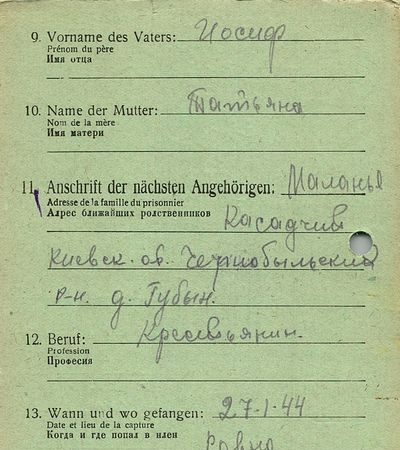 9. Vorname des Vaters: Иосиф
Prénom du père
Имя отца
10. Name der Mutter: Татьяна
Nom de la mère
Имя матери
11. Anschrift der nächsten Angehörigen: Маланья
Adresse de la famille du prisonnier
Адрес ближайших родственников Касадчив
Киевск. об. Чернобыльский
р-н. д. Губын.
12. Beruf: Крестьянин.
Profession
Професия
13. Wann und wo gefangen: 27-1-44
Date et lieu de la capture
Когда и где попал в плен Ровно